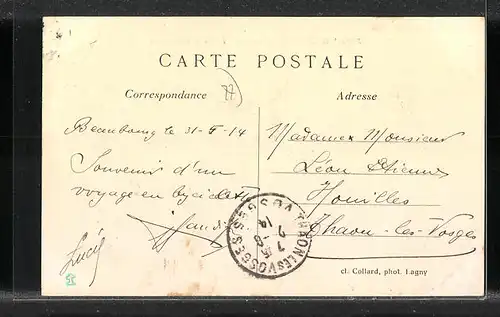 CARTE POSTALE
Correspondance
77
Adresse
Beaubourg le 31-5-14
Souvenir d'un
voyage en bicicle
Lucie
Madame & Monsieur
Léon Etienne
Houilles
Thaon-les-Vosges
THAON LES VOSGES
VOSGES
cl. Collard, phot. Lagny